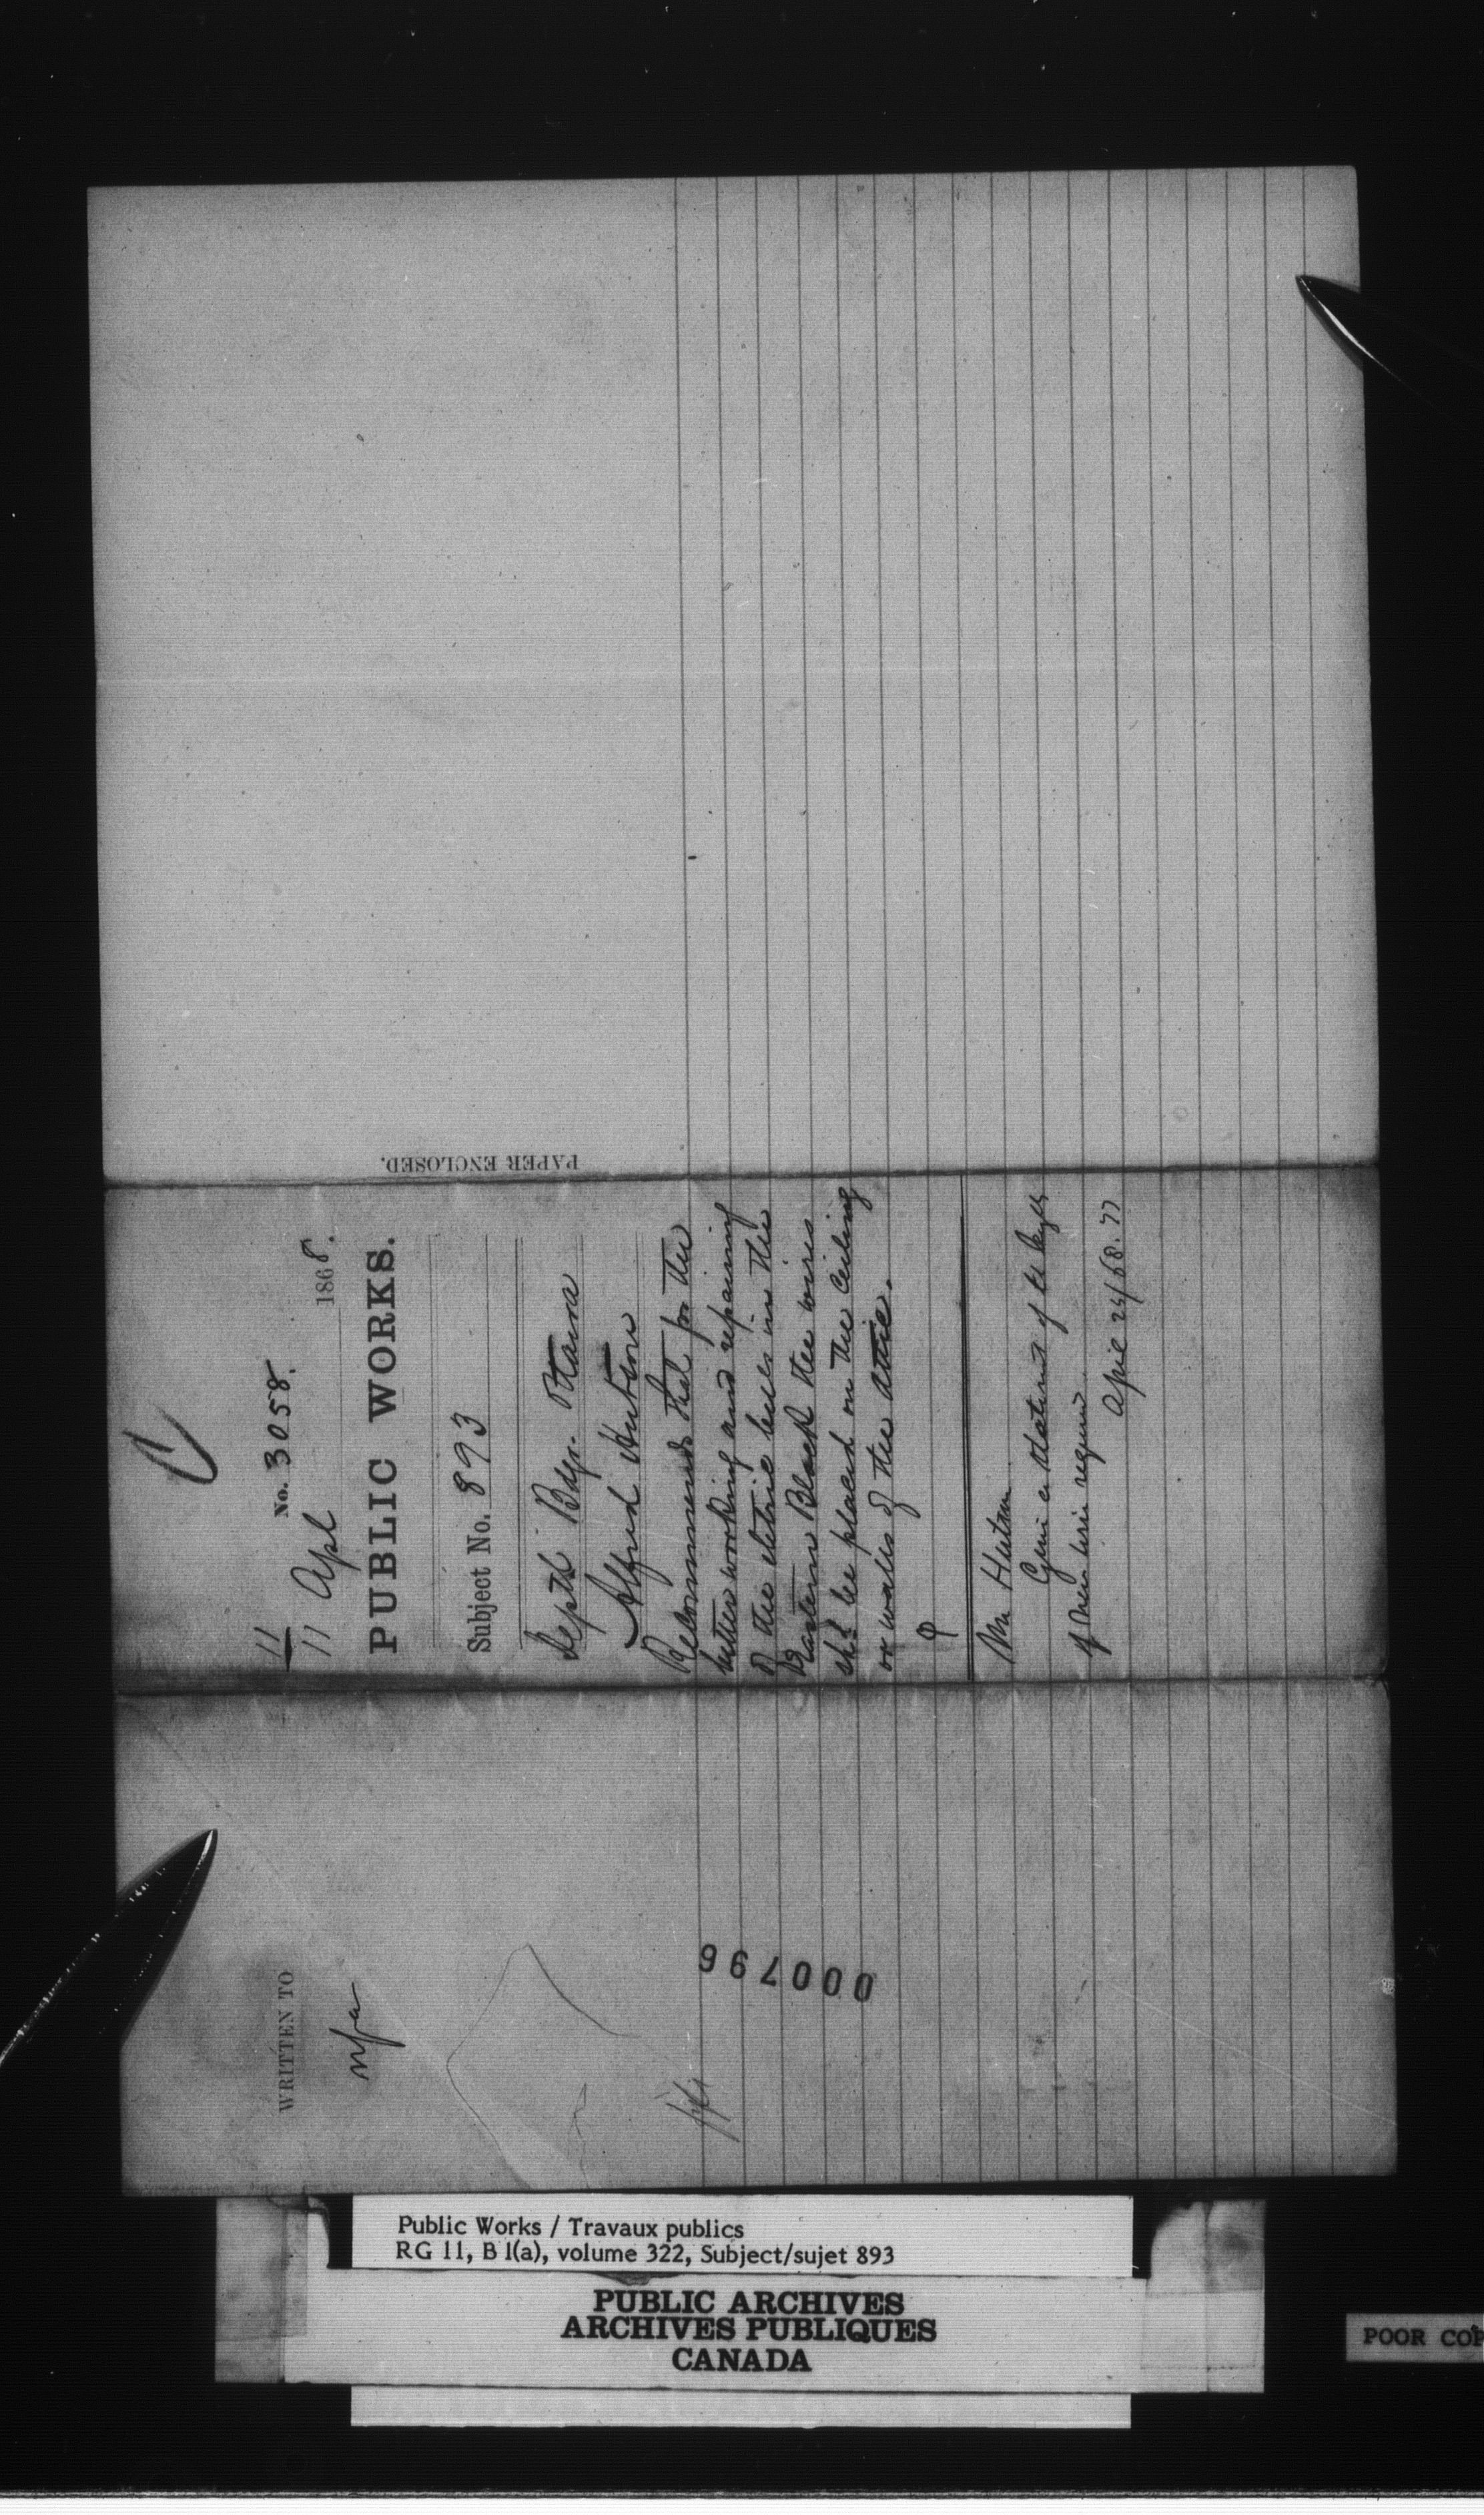 C
11 No. 3058.
11 Apl 1868.
PUBLIC WORKS.
Subject No. 893
Deptl Bdgs. Ottawa
Alfred Hutson
Recommends that for the
better working and repairing
of the eletric bells in the
Eastern Block the wires
shd be placed on the ceiling
or walls of the attic.
Mr Hutson
Give a statement of the length
of new wire required
April 24/68.
PAPER ENCLOSED.
WRITTEN TO
nfa
000796
Public Works / Travaux publics
RG 11, B 1(a), volume 322, Subject/sujet 893
PUBLIC ARCHIVES
ARCHIVES PUBLIQUES
CANADA
POOR COP